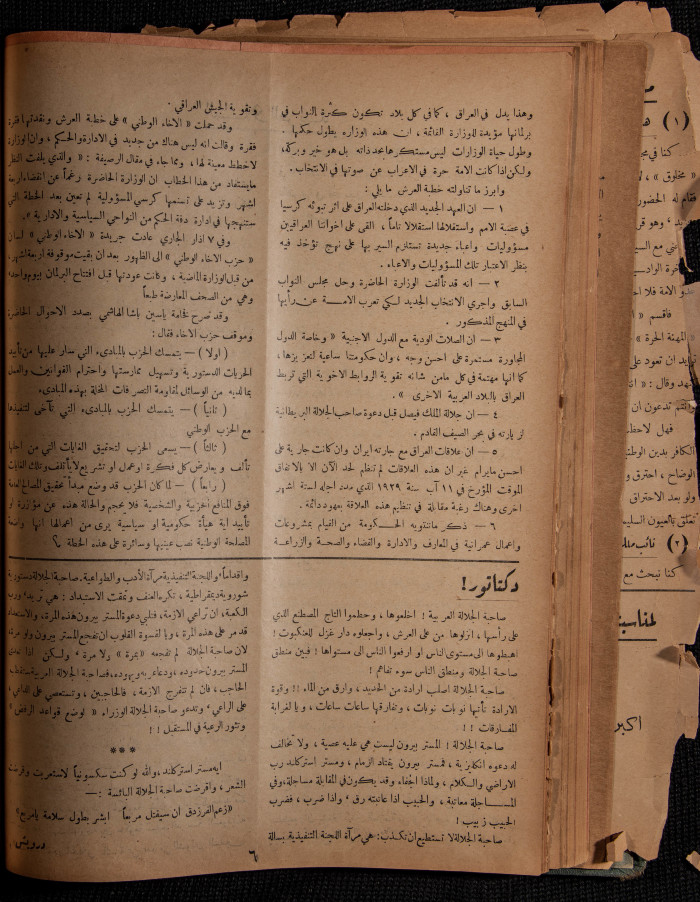 وهذا يدل في العراق ، كما في كل بلاد تكون كثرة النواب في
برلمانها مؤيدة للوزارة القائمة ، ان هذه الوزارة يطول حكمها .
وطول حياة الوزارات ليس مستكرها بحد ذاته بل هو خير وبركة ،
ولكن اذا كانت الامة حرة في الاعراب عن صوتها في الانتخاب .
وابرز ما تناولته خطبة العرش ما يلي :
١ — ان العهد الجديد الذي دخلته العراق على اثر تبوئه كرسيا
في عصبة الامم واستقلالها استقلالا تاماً ، القى على اخواننا العراقيين
مسؤوليات واعباء جديدة تستلزم السير بها على نهج تؤخذ فيه
بنظر الاعتبار تلك المسؤوليات والاعباء .
٢ — انه قد تألفت الوزارة الحاضرة وحل مجلس النواب
السابق واجري الانتخاب الجديد لكي تعرب الامة عن رأيها
في المنهج المذكور .
٣ — ان الصلات الودية مع الدول الاجنبية « وخاصة الدول
المجاورة مستمرة على احسن وجه ، وان حكومتنا ساعية لتعزيزها ،
كما انها مهتمة في كل مامن شانه تقوية الروابط الاخوية التي تربط
العراق بالبلاد العربية الاخرى » .
٤ — ان جلالة الملك فيصل قبل دعوة صاحب الجلالة البريطانية
لزيارته في بحر الصيف القادم .
٥ — ان علاقات العراق مع جارته ايران وان كانت جارية على
احسن مايرام غير ان هذه العلاقات لم تنظم لحد الآن الا بالاتفاق
الموقت المؤرخ في ١١ آب سنة ١٩٢٩ الذي مدد اجله لستة اشهر
اخرى وهناك رغبة متقابلة في تنظيم هذه العلاقة بعهود دائمة .
٦ — ذكر ماتنتويه الحكومة من القيام بمشروعات
واعمال عمرانية في المعارف والادارة والقضاء والصحة والزراعة
وتقوية الجيش العراقي .
وقد حملت « الاخاء الوطني » على خطبة العرش ونقدتها فقرة
فقرة وقالت انه ليس هناك من جديد في الادارة والحكم ، وان الوزارة
لا خطط معينة لها ، ومما جاء في مقال الرصيفة : « والذي يلفت النظر
ما يستفاد من هذا الخطاب ان الوزارة الحاضرة رغماً عن انقضاء اربعة
اشهر وتزيد على تسنمها كرسي المسؤولية لم تعين بعد الخطة التي
ستنتهجها في ادارة دفة الحكم من النواحي السياسية والادارية » .
وفي ٧ اذار الجاري عادت جريدة « الاخاء الوطني » لسان
« حزب الاخاء الوطني » الى الظهور بعد ان بقيت موقوفة اربعة اشهر ،
من قبل الوزارة الماضية ، وكانت عودتها قبل افتتاح البرلمان بيوم واحد
وهي من الصحف المعارضة طبعاً
وقد صرح فخامة ياسين باشا الهاشمي بصدد الاحوال الحاضرة
وموقف حزب الاخاء فقال :
( اولا ) — يتمسك الحزب بالمبادىء التي سار عليها من تأييد
الحريات الدستورية وتسهيل ممارستها واحترام القوانين والعمل
بما لديه من الوسائل لمقاومة التصرفات المخلة بهذه المبادىء
( ثانياً ) — يتمسك الحزب بالمبادىء التي تآخى لتنفيذها
مع الحزب الوطني
( ثالثاً ) — يسعى الحزب لتحقيق الغايات التي من اجلها
تألف ويعارض كل فكرة او عمل او تشريع لا يأتلف وتلك الغايات
( رابعاً ) — لما كان الحزب قد وضع مبدأ تحقيق المصالح العامة
فوق المنافع الحزبية والشخصية فلا يحجم والحالة هذه عن مؤازرة او
تأييد اية هيأة حكومية او سياسية يرى من اعمالها انها واضعة
المصلحة الوطنية نصب عينيها وسائرة على هذه الخطة .
دكتاتور !
صاحبة الجلالة العربية ! اخلعوها ، وحطموا التاج المصطنع الذي
على رأسها ، انزلوها من على العرش ، واجعلوه دار غزل للعنكبوت !
اهبطوها الى مستوى الناس او ارفعوا الناس الى مستواها ! فبين منطق
صاحبة الجلالة ومنطق الناس سوء تفاهم !
صاحبة الجلالة اصلب ارادة من الحديد ، وارق من الماء !! وقوة
الارادة تأتيها نوبات نوبات ، وتفارقها ساعات ساعات ، ويا لغرابة
المفارقات !!
صاحبة الجلالة ! المستر بيرون ليست هي عليه عصية ، ولا تخالف
له دعوة انكليزية ، فمستر بيرون يمتاد الزمام ، ومستر استركلند رب
الاراضي والكلام ، ولماذا الجفاء وقد يكون في المقابلة مساجلة ، وفي
المساجلة معاتبة ، والحبيب اذا عاتبته رق ، واذا ضرب ، فضرب
الحبيب زبيب !
صاحبة الجلالة لا تستطيع ان تكذب : هي مرآة اللجنة التنفيذية بسالة
واقداماً ، واللجنة التنفيذية مرآة الأدب والطواعية . صاحبة الجلالة دستورية
شوروية ديمقراطية ، تكره العنف وتمقت الاستبداد : هي تريد ، ورب
الكعبة ، ان تراعي الازمة ، فتلبي دعوة المستر بيرون هذه المرة ، والاستعداد
قد مر على هذه المرة ، ويا لقسوة القلوب ان تفجع المستر بيرون ولو مرة ،
لان صاحبة الجلالة لم تفجعه « بمرة » ولا مرة ، ولكن اذا تعدى
المستر بيرون حدوده ، ودعا عربه ويهوده ، فصاحبة الجلالة العربية ستغضب
الحاجب ، فان لم تنفرج الازمة ، فالحاجبين ، وتستعصي على الداعي ،
على الراعي ، وتدعو صاحبة الجلالة الوزراء « لوضع قواعد الرفض »
وتثور الرعية في المستقبل !!
***
ايه مستر استركلند ، والله لو كنت سكسونياً لاستعربت وقرضت
الشعر ، واقرضت صاحبة الجلالة البائسة : —
« زعم الفرزدق ان سيقتل مربعاً ابشر بطول سلامة يا مربع »
درويش
٦
( ١ )
« مخلوق »
« المهنة الحرة »
( ٢ )
لمناسبة